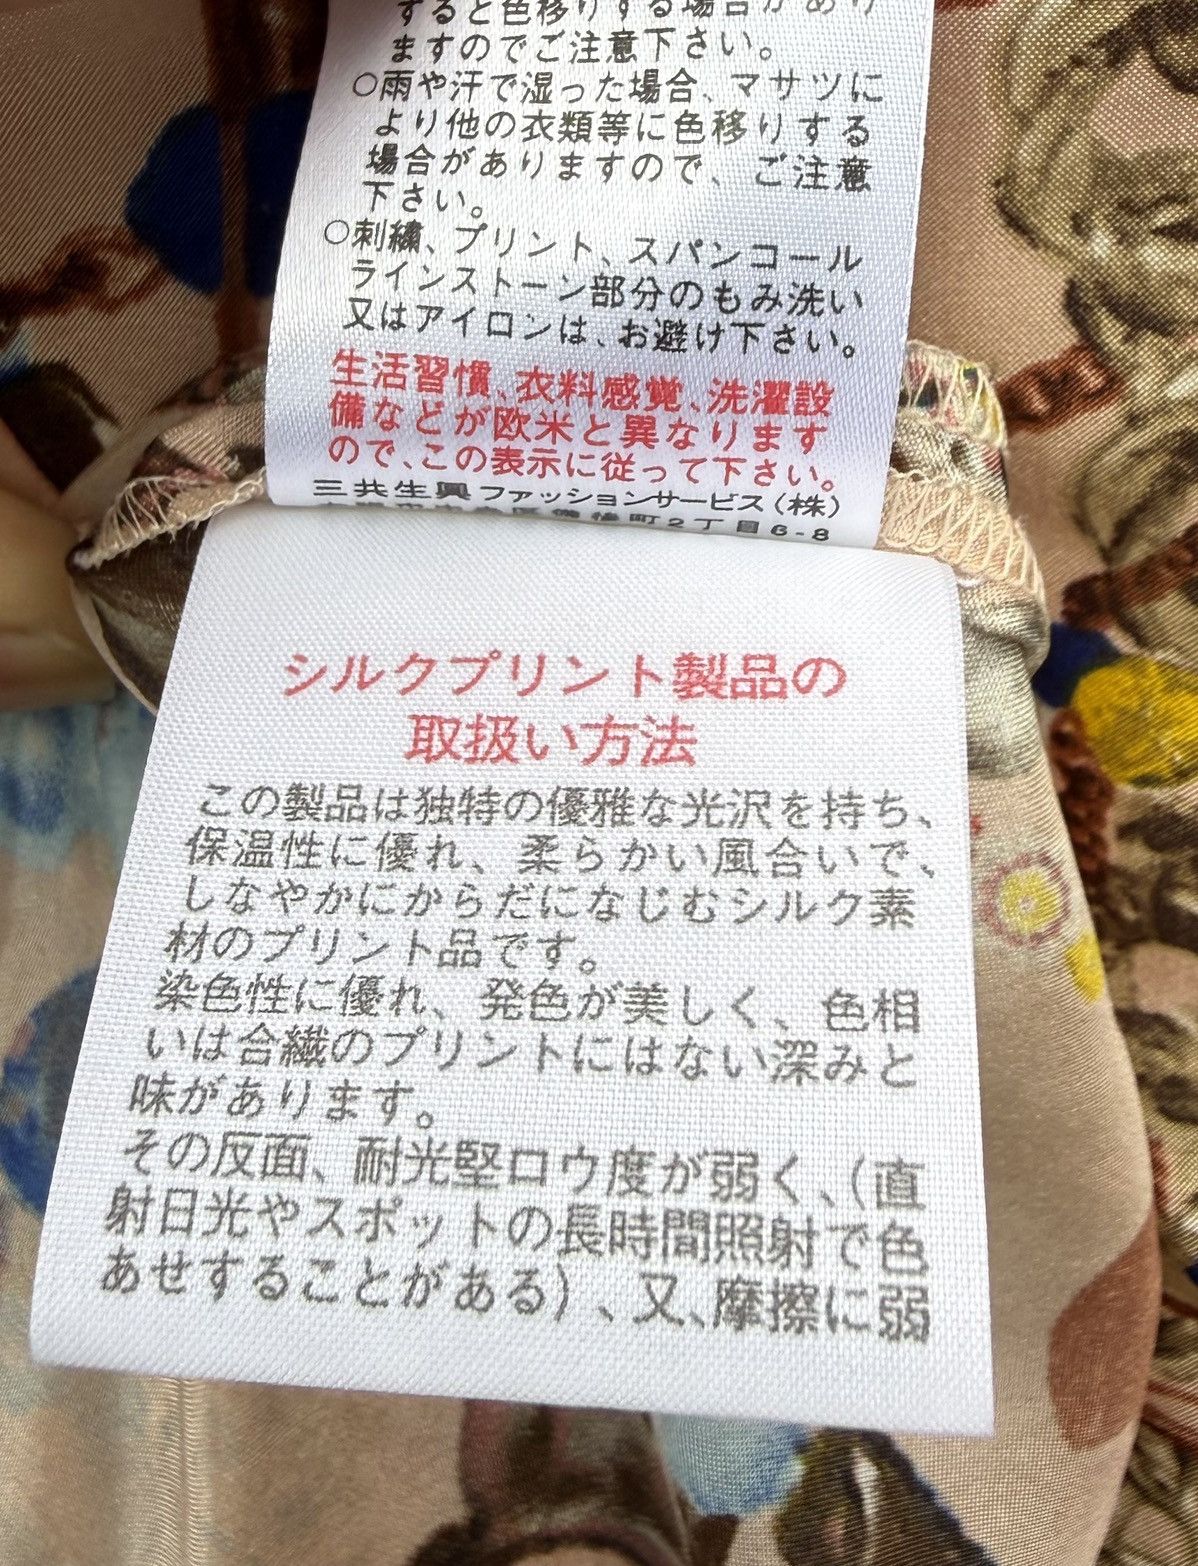 すると色移りする場合があり
ますのでご注意下さい。
○雨や汗で湿った場合、マサツに
より他の衣類等に色移りする
場合がありますので、ご注意
下さい。
○刺繍、プリント、スパンコール
ラインストーン部分のもみ洗い
又はアイロンは、お避け下さい。
生活習慣、衣料感覚、洗濯設
備などが欧米と異なります
ので、この表示に従って下さい。
三共生興ファッションサービス(株)
町2丁目6-8
シルクプリント製品の
取扱い方法
この製品は独特の優雅な光沢を持ち、
保温性に優れ、柔らかい風合いで、
しなやかにからだになじむシルク素
材のプリント品です。
染色性に優れ、発色が美しく、色相
いは合繊のプリントにはない深みと
味があります。
その反面、耐光堅ロウ度が弱く、(直
射日光やスポットの長時間照射で色
あせすることがある)、又、摩擦に弱